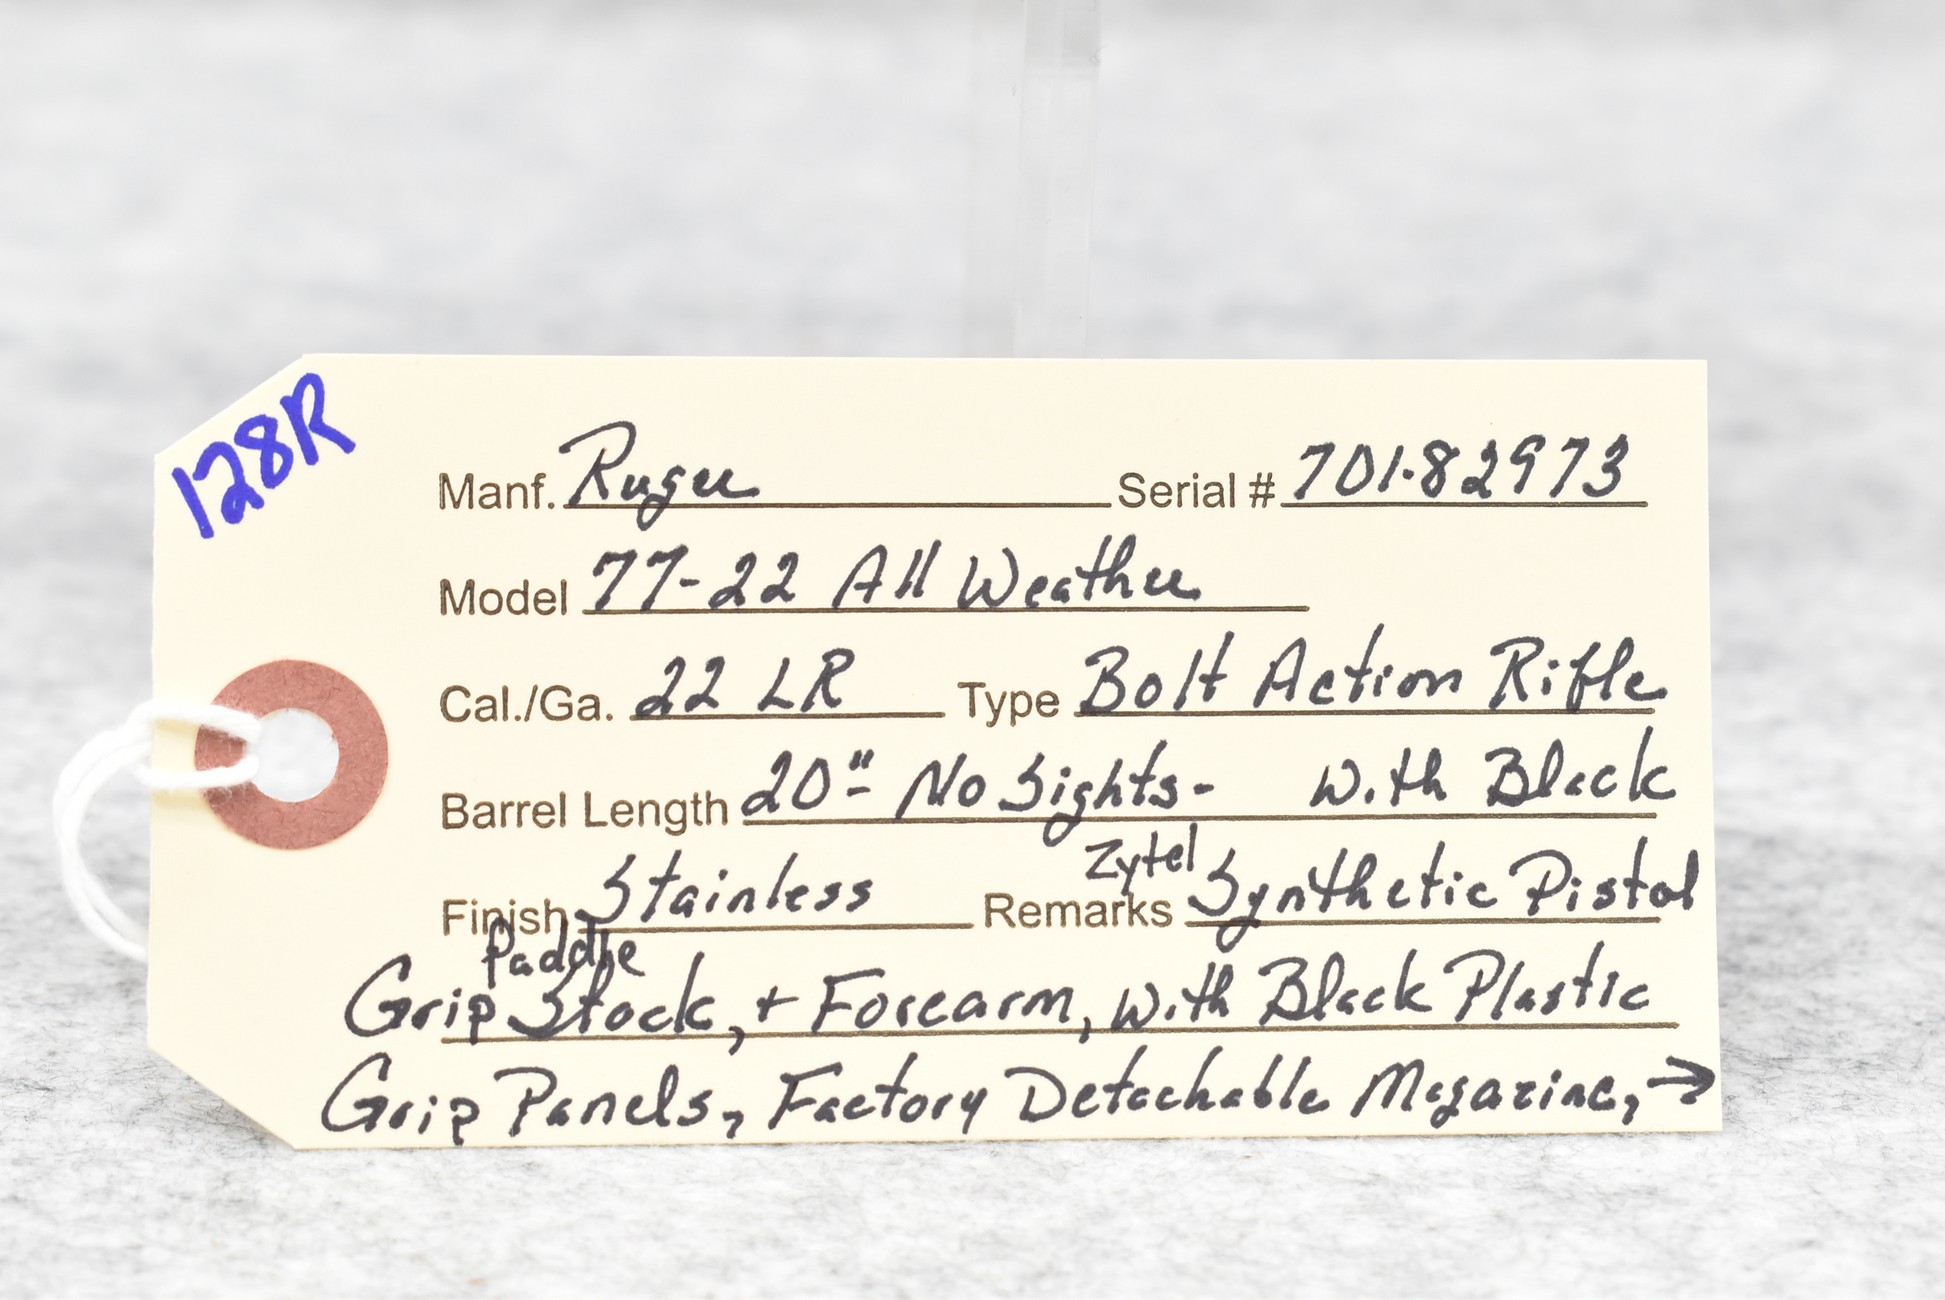 128R
Manf. Ruger Serial # 701-82973
Model 77-22 All Weather
Cal./Ga. 22 LR Type Bolt Action Rifle
Barrel Length 20" - No Sights - with Black
Zytel
Finish Stainless Remarks Synthetic Pistol
Paddle
Grip Stock, + Forearm, with Black Plastic
Grip Panels, Factory Detachable Magazine, →